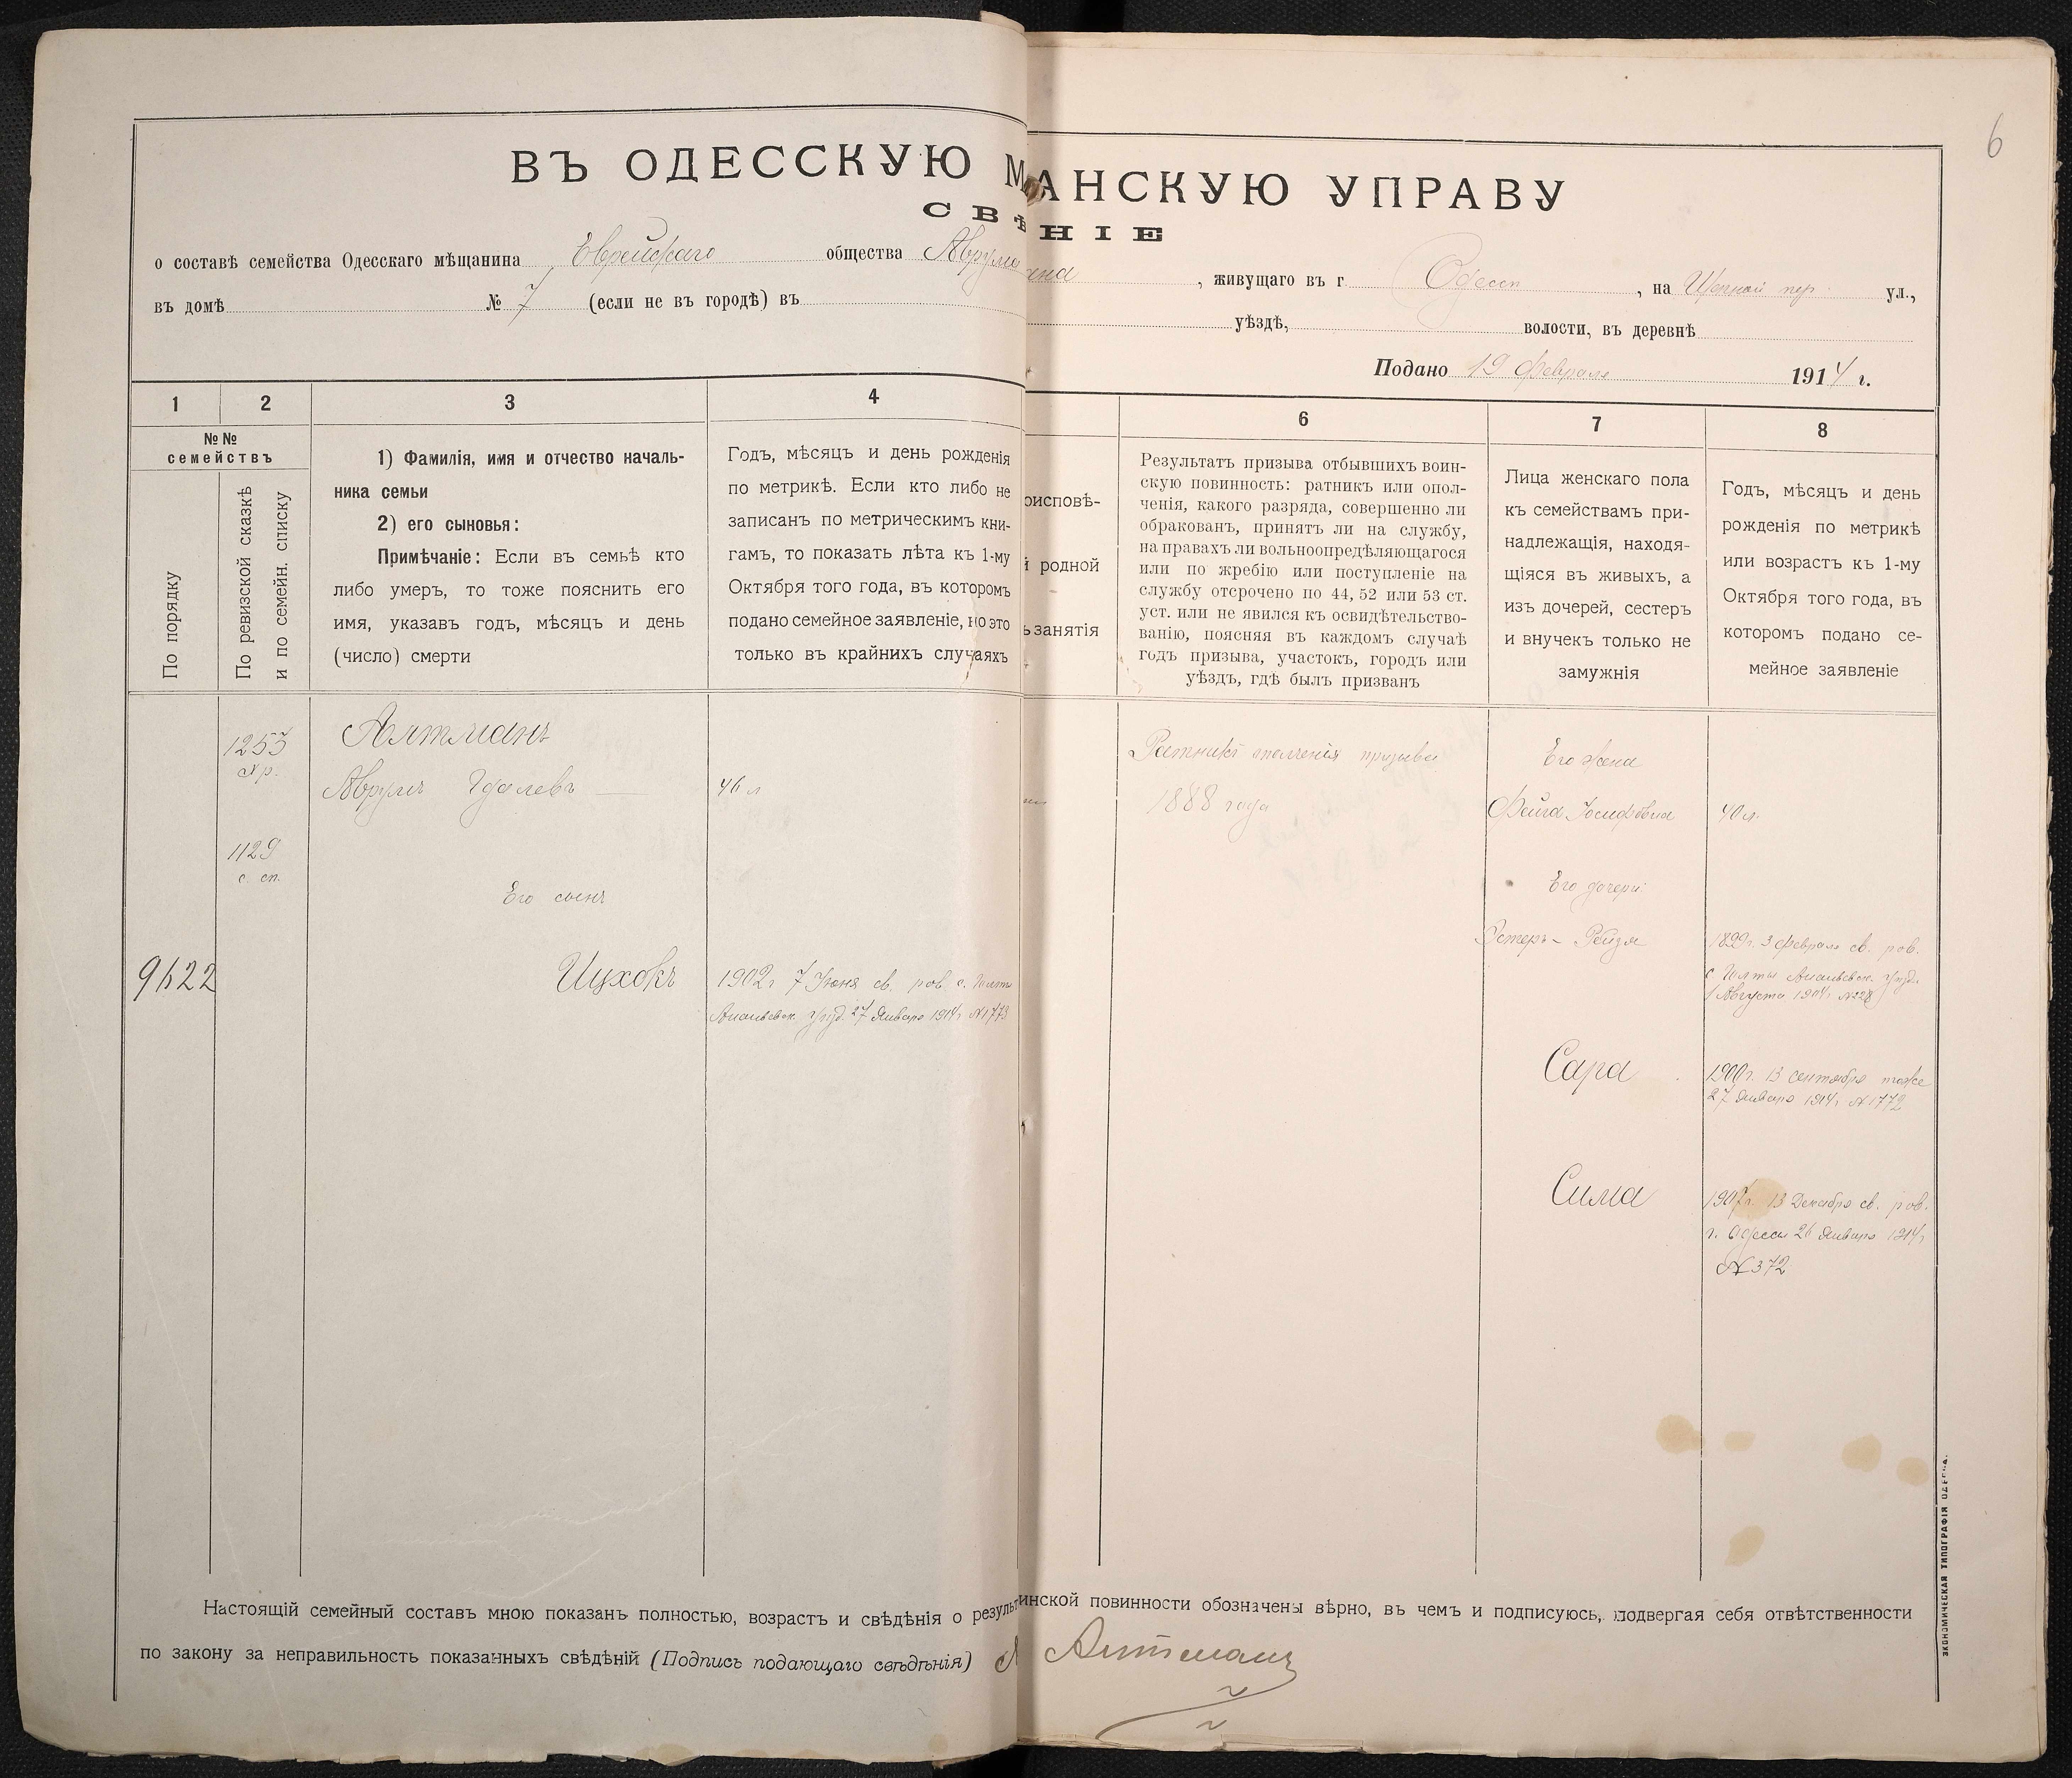 6
ВЪ ОДЕССКУЮ М АНСКУЮ УПРАВУ
СВѢ НІЕ
о составѣ семейства Одесскаго мѣщанина Еврейскаго общества Аврума , живущаго въ г. Одессѣ , на Цѣпной пер. ул.,
въ домѣ № 7 (если не въ городѣ) въ уѣздѣ, волости, въ деревнѣ
Подано 19 Февраля 1914 г.
1
2
3
4
6
7
8
№№
семействъ
По порядку
По ревизской сказкѣ
и по семейн. списку
1) Фамилія, имя и отчество началь-
ника семьи
2) его сыновья:
Примѣчаніе: Если въ семьѣ кто
либо умеръ, то тоже пояснить его
имя, указавъ годъ, мѣсяцъ и день
(число) смерти
Годъ, мѣсяцъ и день рожденія
по метрикѣ. Если кто либо не
записанъ по метрическимъ кни-
гамъ, то показать лѣта къ 1-му
Октября того года, въ которомъ
подано семейное заявленіе, но это
только въ крайнихъ случаяхъ
оисповѣ-
й родной
ь занятія
Результатъ призыва отбывшихъ воин-
скую повинность: ратникъ или опол-
ченія, какого разряда, совершенно ли
обракованъ, принятъ ли на службу,
на правахъ ли вольноопредѣляющагося
или по жребію или поступленіе на
службу отсрочено по 44, 52 или 53 ст.
уст. или не явился къ освидѣтельство-
ванію, поясняя въ каждомъ случаѣ
годъ призыва, участокъ, городъ или
уѣздъ, гдѣ былъ призванъ
Лица женскаго пола
къ семействамъ при-
надлежащія, находя-
щіяся въ живыхъ, а
изъ дочерей, сестеръ
и внучекъ только не
замужнія
Годъ, мѣсяцъ и день
рожденія по метрикѣ
или возрастъ къ 1-му
Октября того года, въ
которомъ подано се-
мейное заявленіе
1253
Алтманъ
Аврумъ Гдалевъ — 46 л
Ратникъ ополченія призыва
1888 года
Его жена
Фейга Іосифовна 40 л.
1129
с. сп.
Его сынъ
Его дочери
9622
Ицхокъ
1902 г 7 Іюня св. рав. с. Голты
Ананьевск. уѣзд. 27 Января 1914 г №1773
Эстеръ-Рейзя
1899 г. 3 Февраля св. рав.
с Голты Ананьевск. уѣзд.
Августа 1914 г. №228
Сара
1900 г. 13 сентября тоже
27 Января 1914 г №1772
Сима
1907 г. 13 Декабря св. рав.
г. Одессы 26 Января 1914 г
№372
Настоящій семейный составъ мною показанъ полностью, возрастъ и свѣдѣнія о результ инской повинности обозначены вѣрно, въ чемъ и подписуюсь, подвергая себя отвѣтственности
по закону за неправильность показанныхъ свѣдѣній (Подпись подающаго свѣдѣнія) А Алтманъ
ЭКОНОМИЧЕСКАЯ ТИПОГРАФІЯ ОДЕССА.